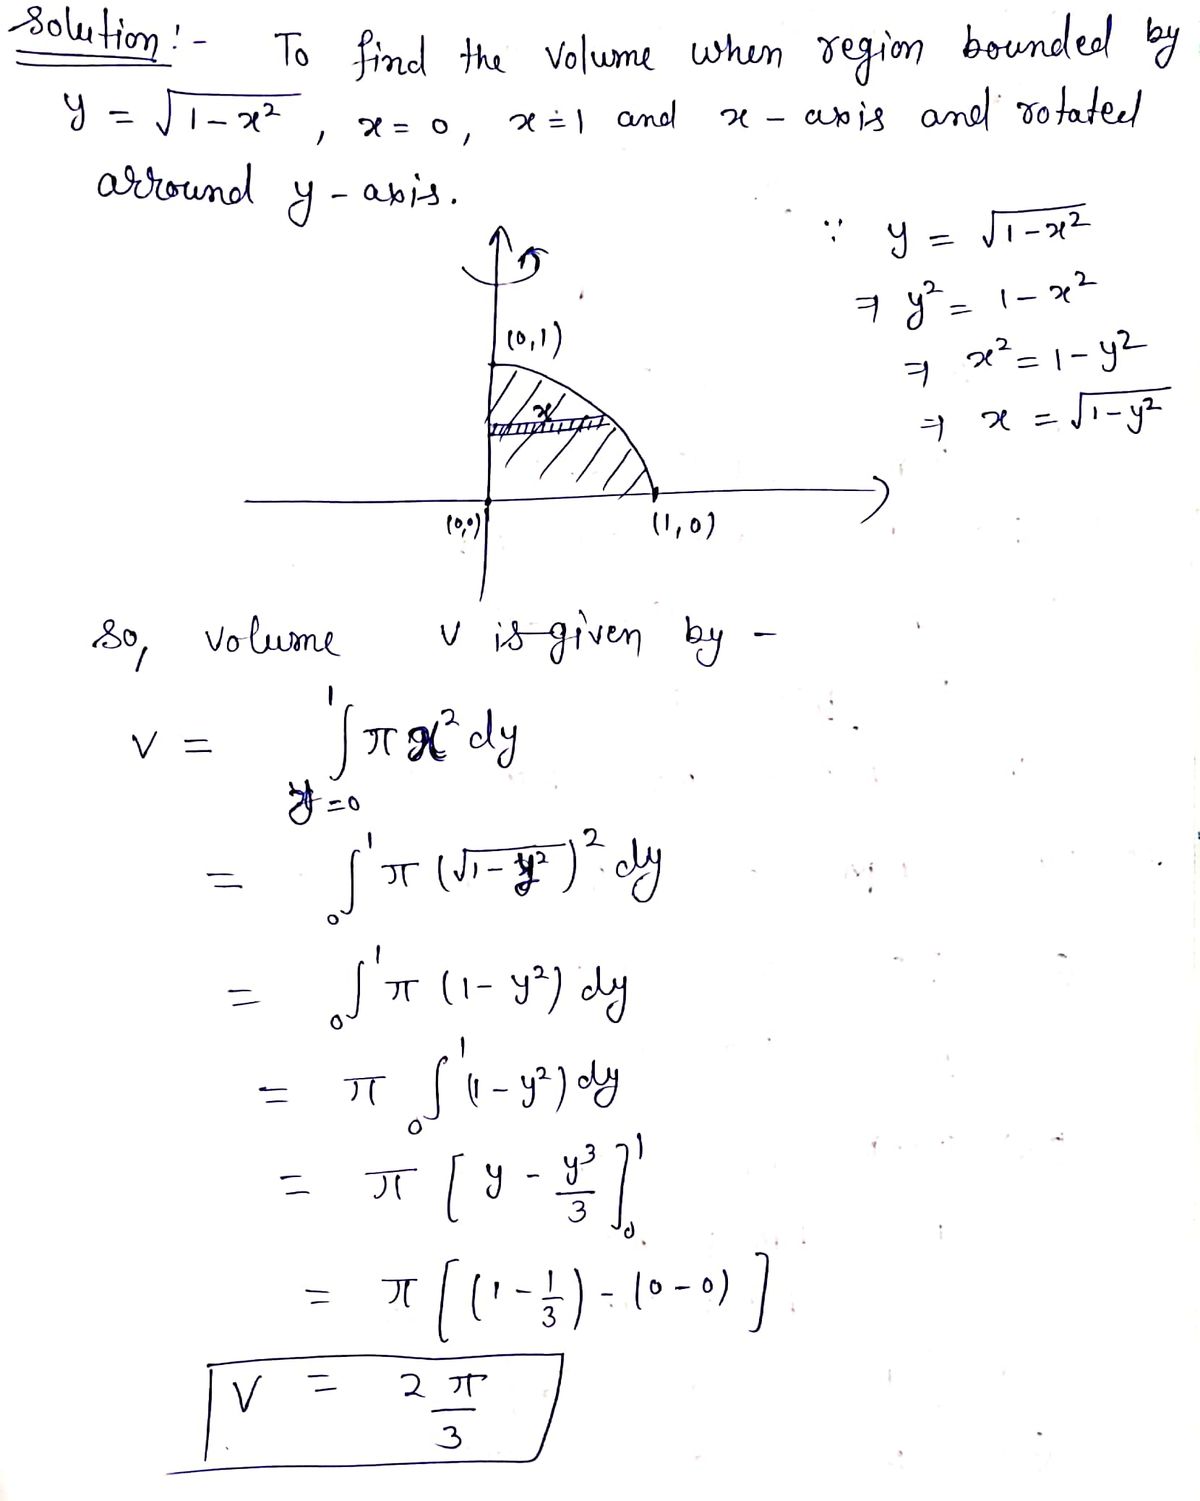 Solution:- To find the volume when region bounded by
y = √1-x² , x = 0, x = 1 and x - axis and rotated
arround y - axis.
∵ y = √1-x²
⇒ y² = 1 - x²
⇒ x² = 1 - y²
⇒ x = √1-y²
(0,1)
x
(0,0) (1,0)
So, volume V is given by -
V = ∫_{y=0}^{1} π x² dy
= ∫_0^1 π (√1-y²)² dy
= ∫_0^1 π (1 - y²) dy
= π ∫_0^1 (1 - y²) dy
= π [ y - y³/3 ]_0^1
= π [ (1 - 1/3) - (0 - 0) ]
V = 2π/3